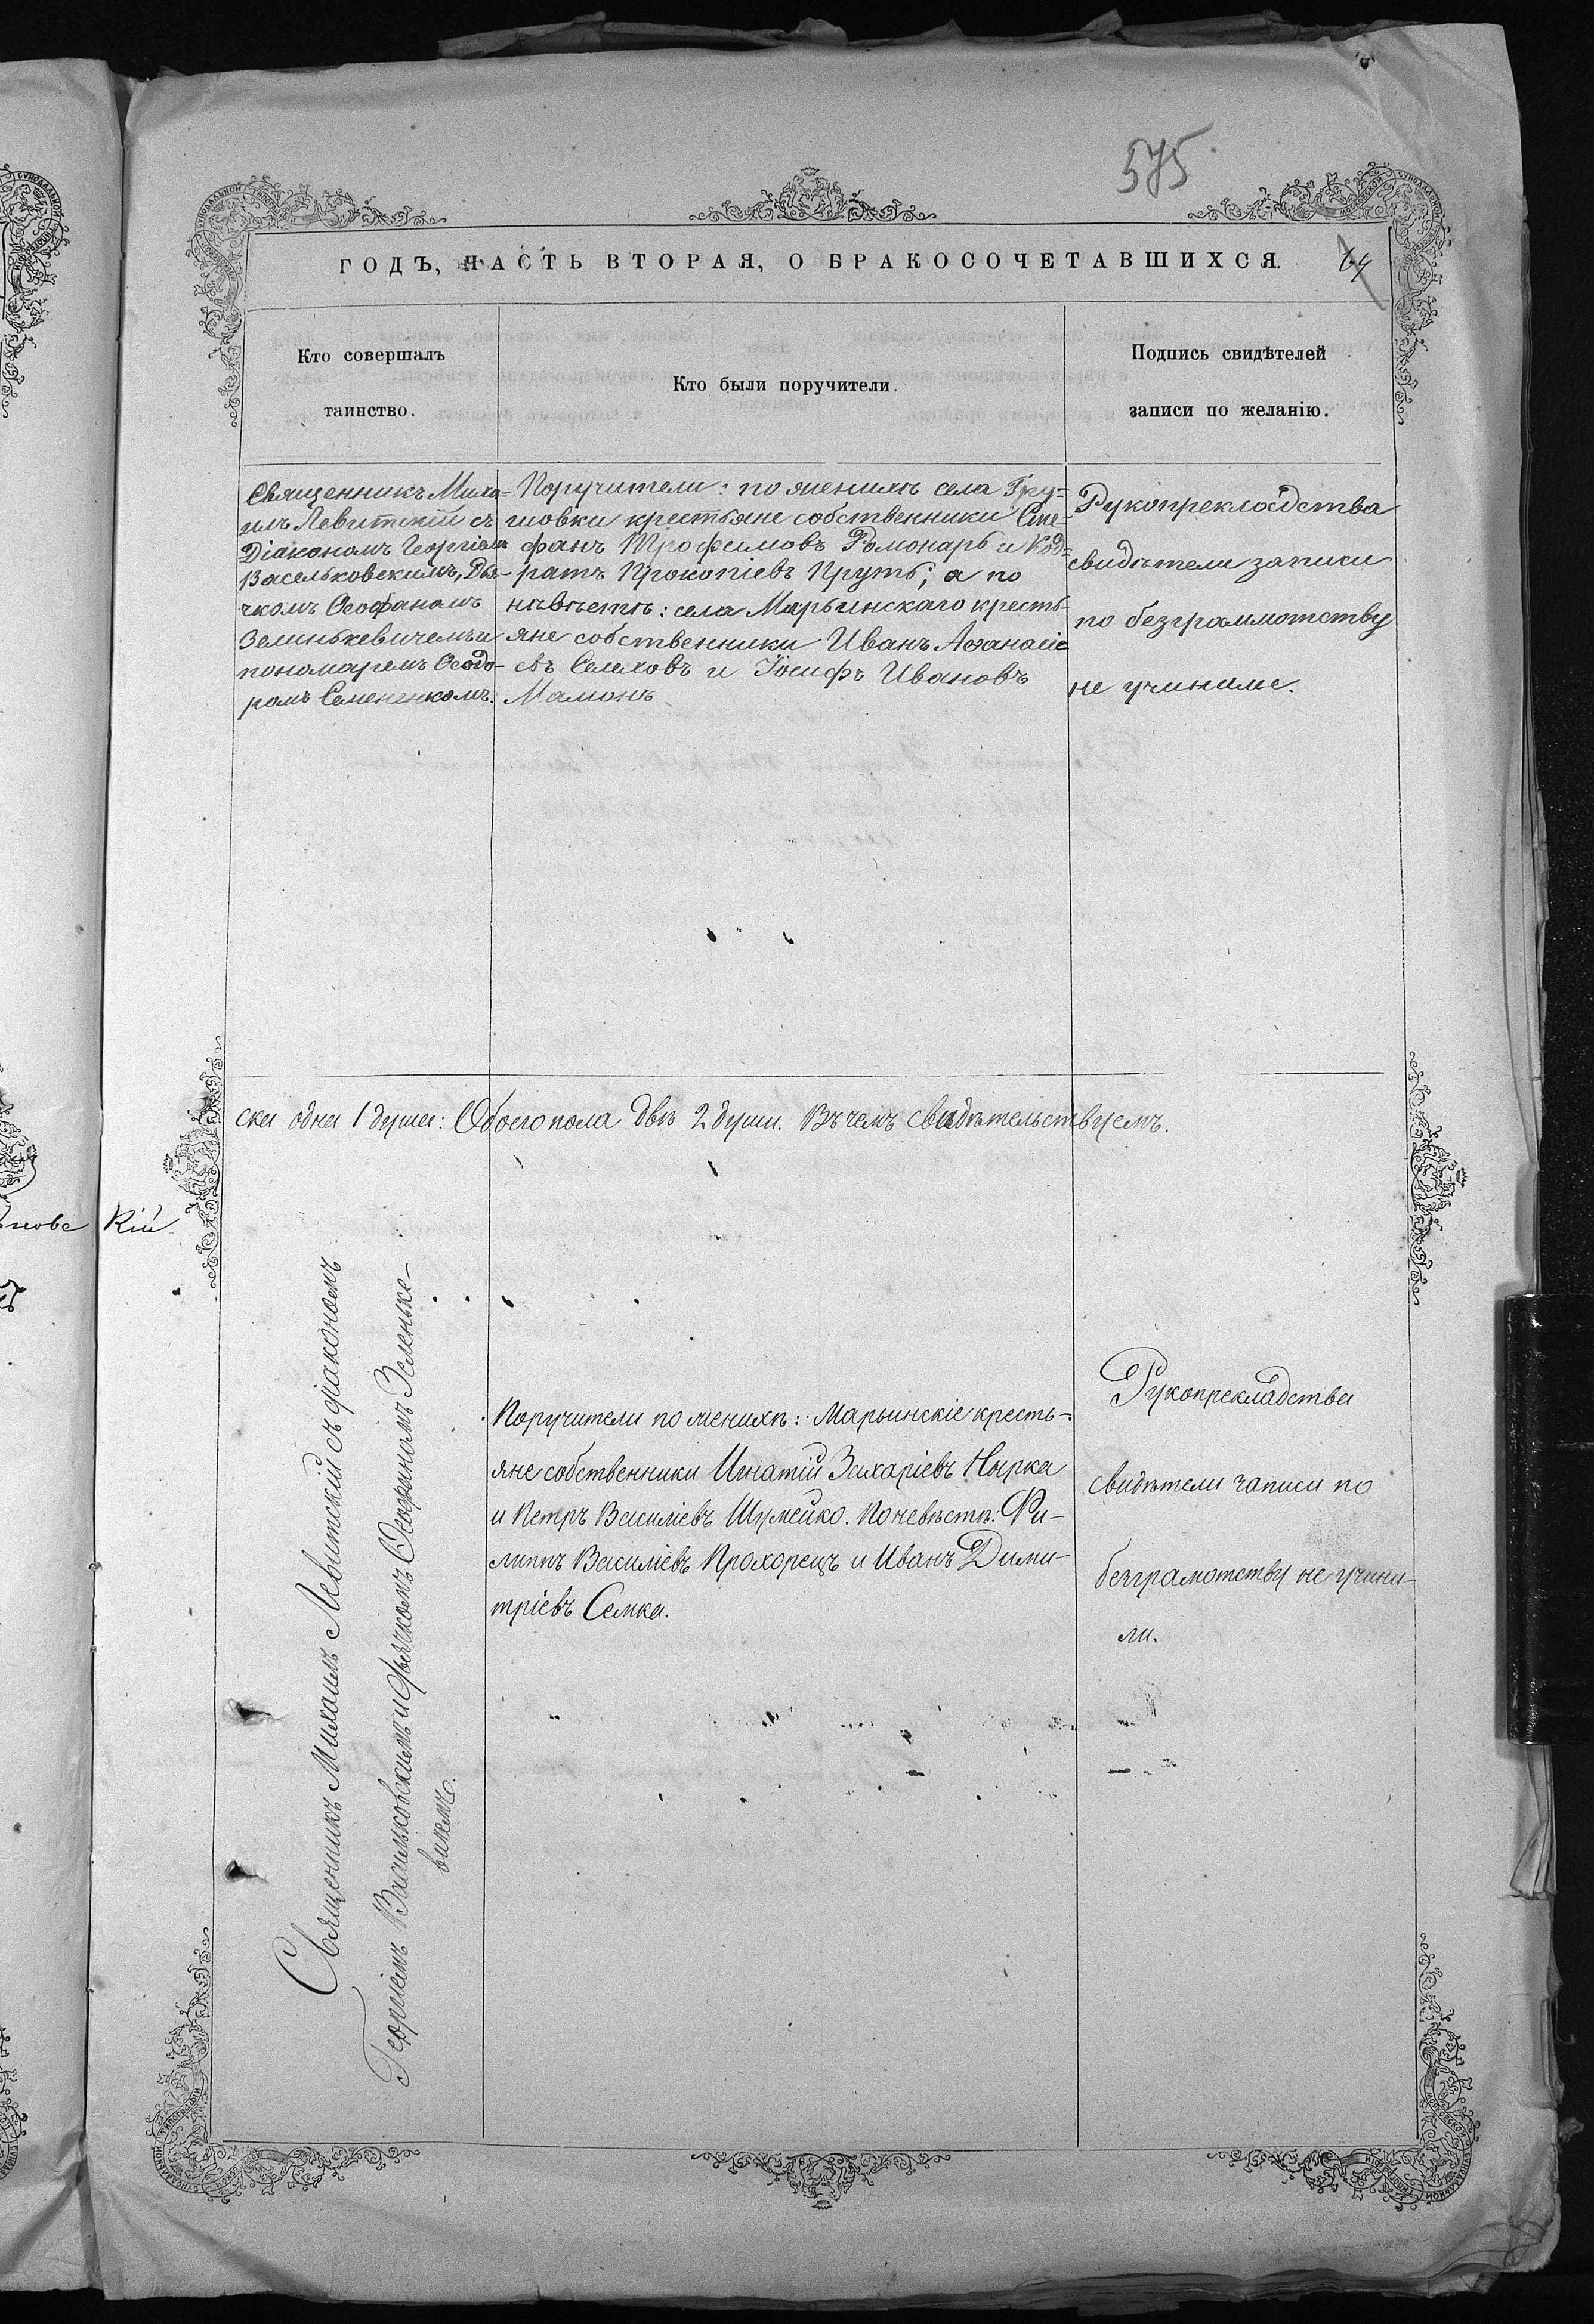 575
ГОДЪ, ЧАСТЬ ВТОРАЯ, О БРАКОСОЧЕТАВШИХСЯ.
Кто совершалъ
таинство.
Кто были поручители.
Подпись свидѣтелей
записи по желанію.
Священникъ Миха-
илъ Левитскій съ
Діакономъ Георгіемъ
Васильковскимъ, Дья-
чкомъ Ѳеофаномъ
Зелинькевичемъ и
пономаремъ Ѳеодо-
ромъ Семененкомъ.
Поручители: по женихѣ села Гру-
шовки крестьяне собственники Сте-
фанъ Трофимовъ Гомонарь и Код-
ратъ Прокопіевъ Круть; а по
нѣвѣстѣ: села Марьинскаго кресть-
яне собственники Иванъ Аѳанасіе
въ Селеховъ и Іосифъ Ивановъ
Мамонъ
Рукопрекладства
свидѣтели записи
по безграммотству
не учинили.
ска одна 1 душа: Обоего пола двѣ 2 души. Въ чемъ свидѣтельствуемъ.
кій
Священникъ Михаилъ Левитскій съ діакономъ
Георгіемъ Васильковскимъ и дьячкомъ Ѳеофаномъ Зеленьке-
вичемъ.
Поручители по женихѣ: Марьинскіе кресть-
яне собственники Игнатій Захаріевъ Нырка
и Петръ Василіевъ Шумейко. По невѣстѣ: Фи-
липпъ Василіевъ Прохорецъ и Иванъ Дими-
тріевъ Семка.
Рукопрекладства
свидѣтели записи по
безграмотству не учини-
ли.